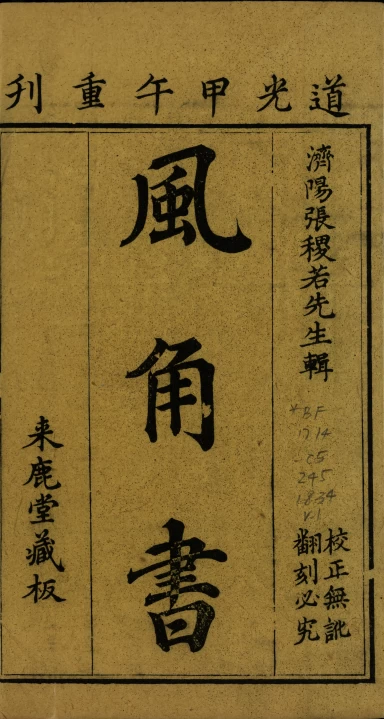 道光甲午重刊
濟陽張稷若先生輯
校正無訛
翻刻必究
風角書
来鹿堂藏板
*BF
1714
.C5
Z45
1834
V.1